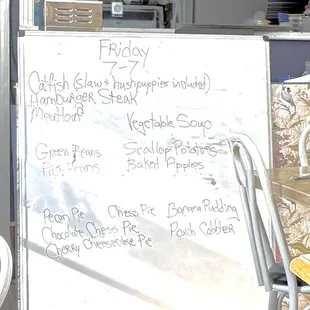 Friday
7-7
Catfish (slaw + hushpuppies included)
Hamburger Steak
Meatloaf
Vegetable Soup
Green Beans Scallop Potatoes
Baked Apples
Pecan Pie Chess Pie Banana Pudding
Chocolate Chess Pie Peach Cobbler
Cherry Cheesecake Pie